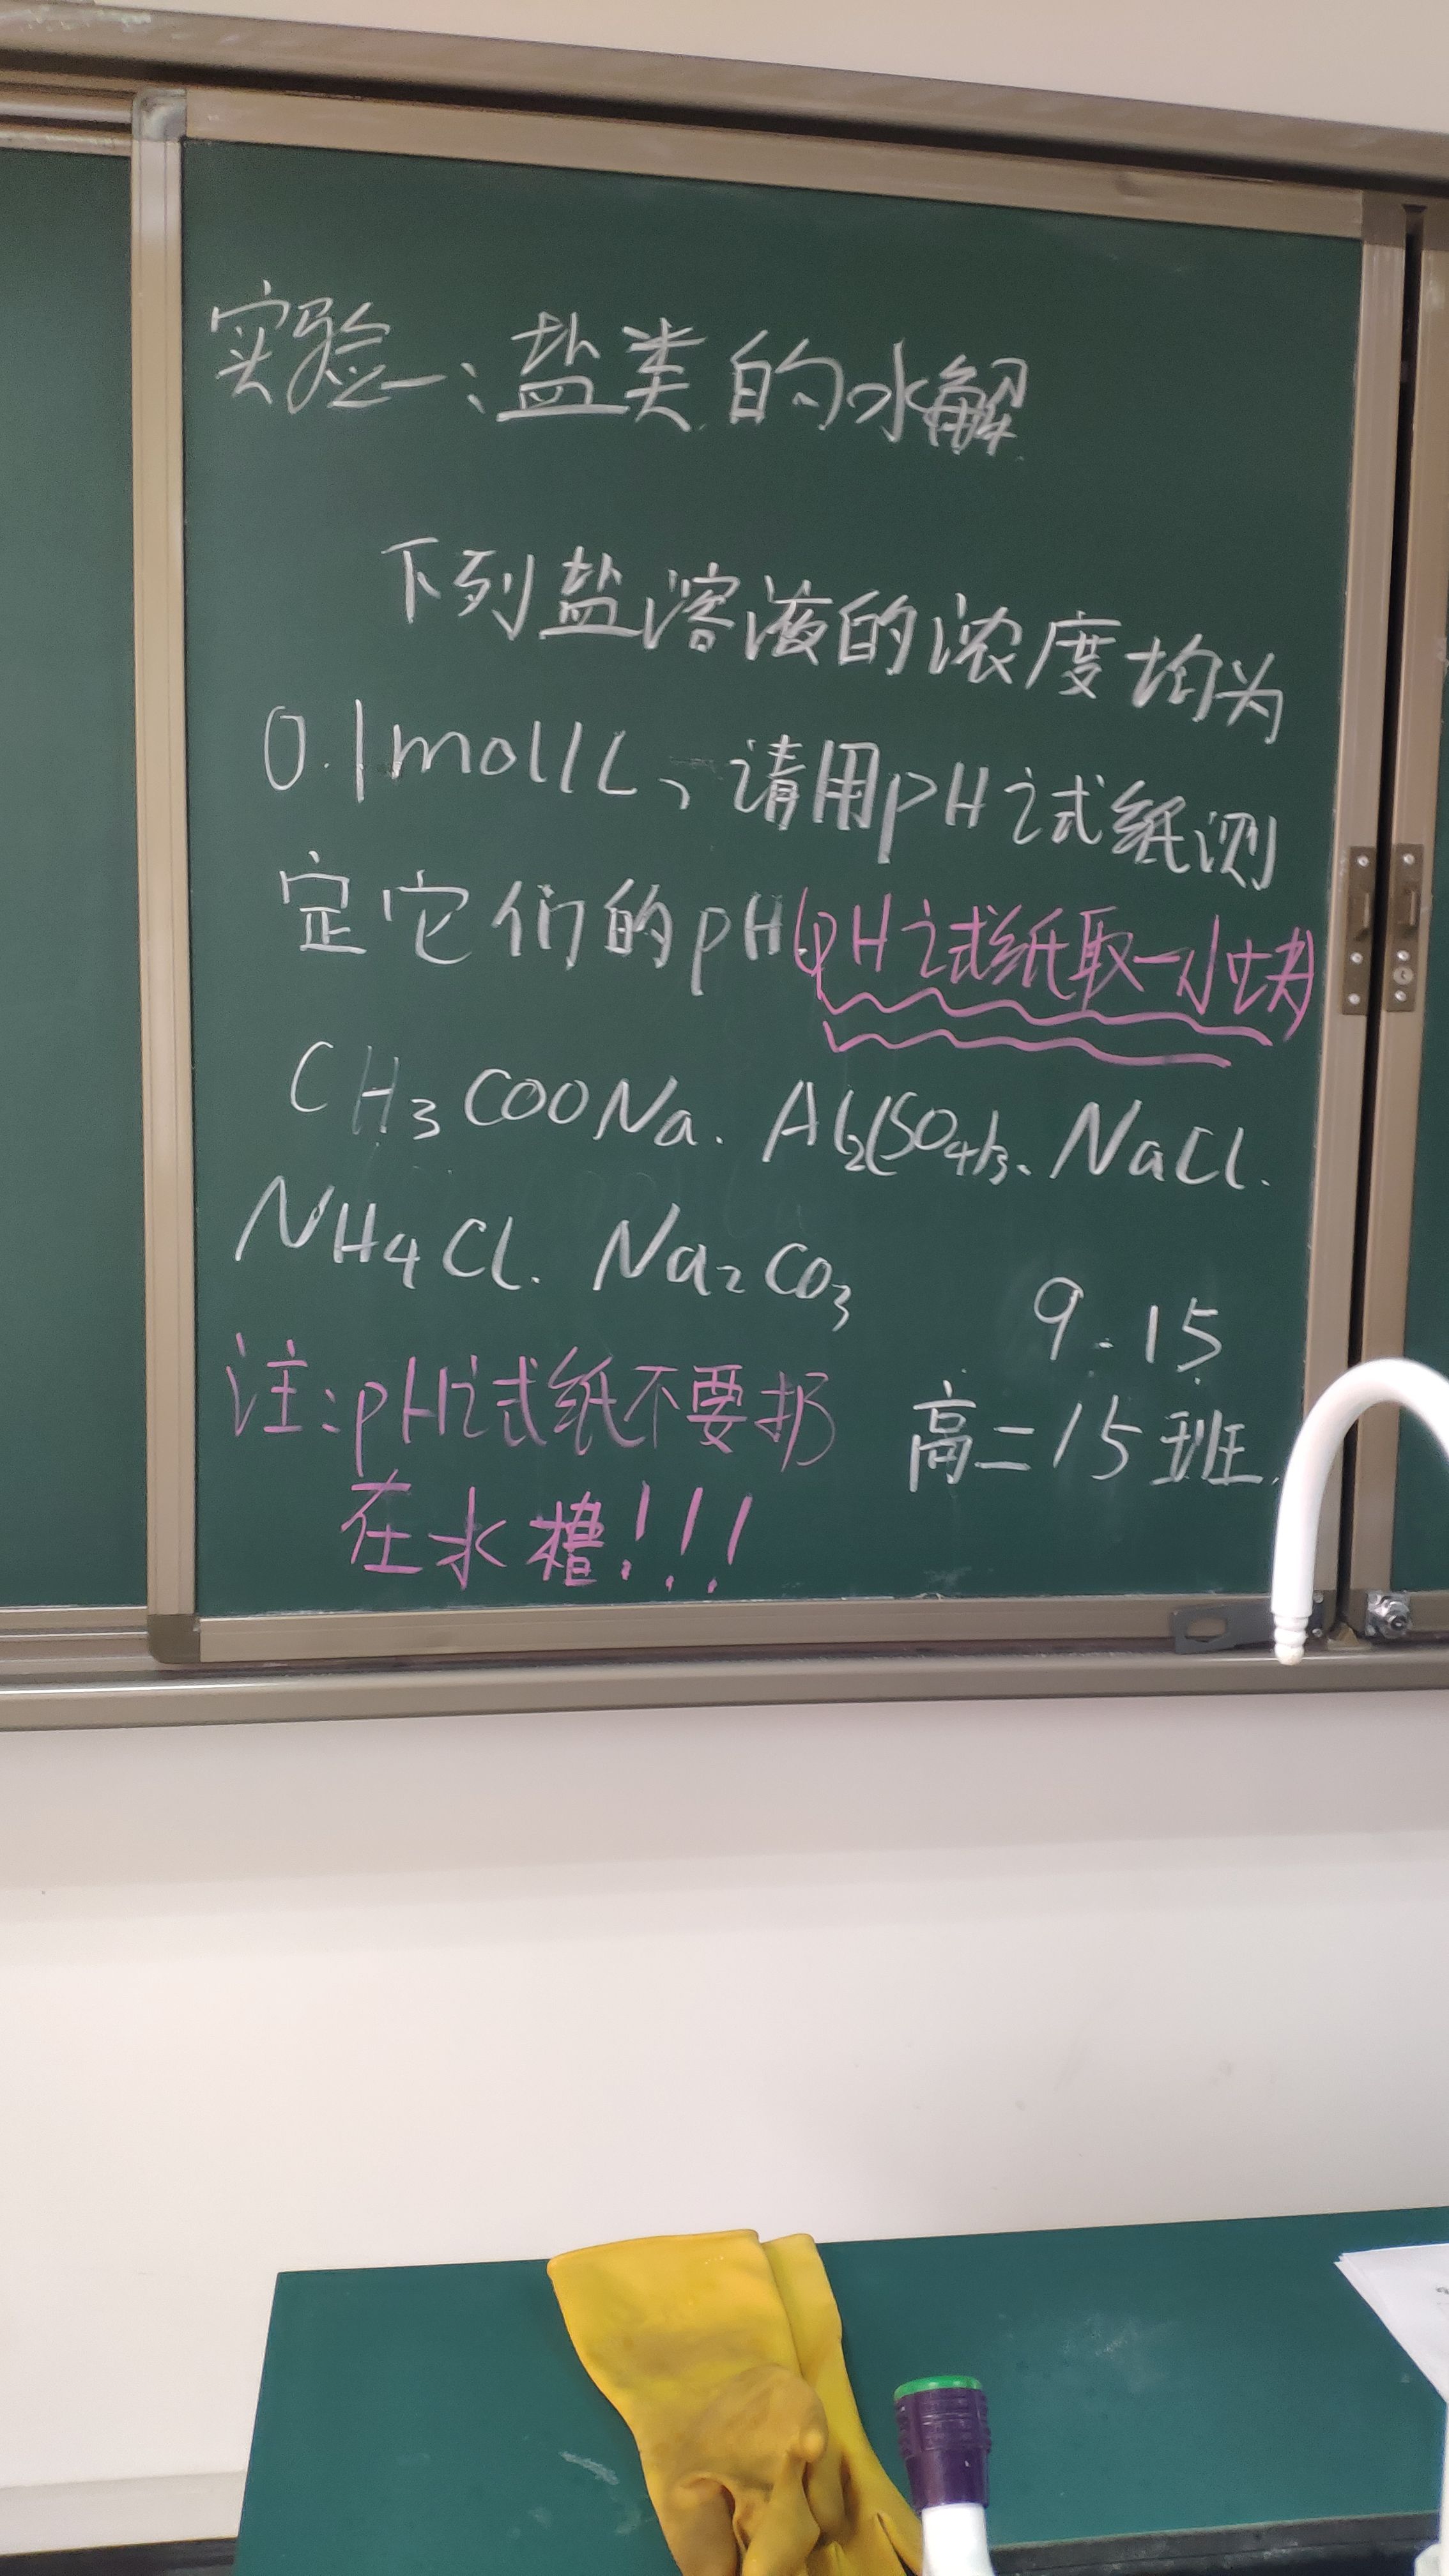 实验一:盐类的水解
下列盐溶液的浓度均为
0.1mol/L、请用pH试纸测
定它们的pH(pH试纸取一小块)
CH₃COONa. Al₂(SO₄)₃、NaCl.
NH₄Cl. Na₂CO₃
9.15
注:pH试纸不要扔
高二15班.
在水槽!!!